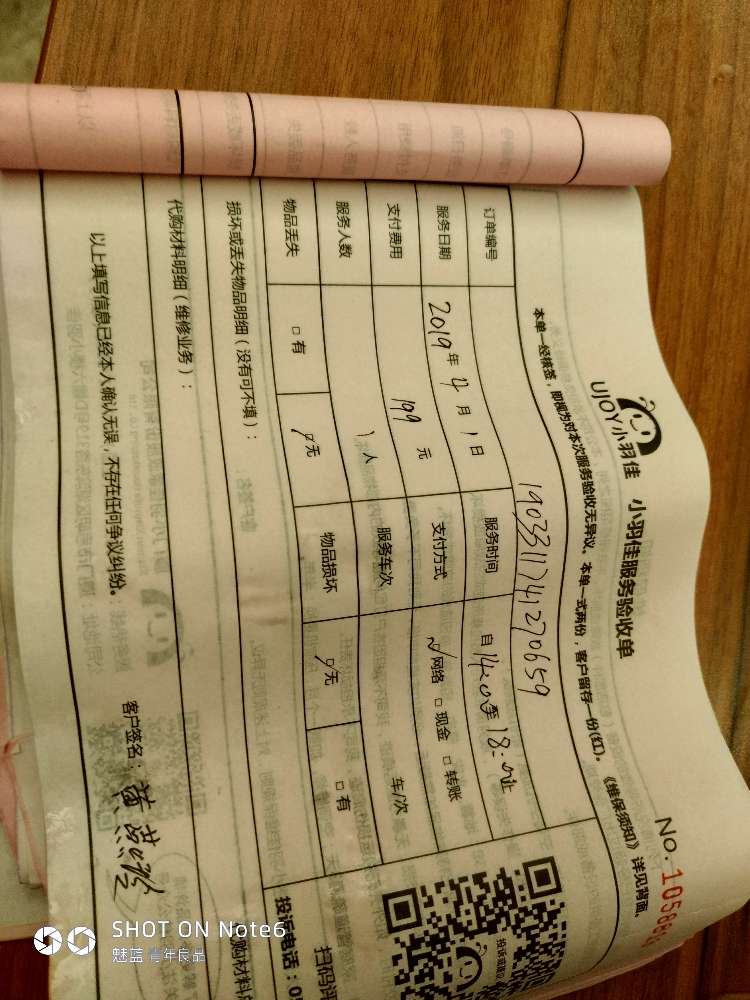 UJOY小羽佳 小羽佳服务验收单
No.10588
本单一经核签，即视为对本次服务验收无异议。本单一式两份，客户留存一份(红)。《维保须知》详见背面。
订单编号 1903311741270659
服务日期 2019年4月1日 服务时间 自14:00至18:00止
支付费用 199元 支付方式 ☑网络 □现金 □转账
服务人数 1人 服务车次 车/次
物品丢失 □有 ☑无 物品损坏 ☑无 □有
损坏或丢失物品明细（没有可不填）：
代购材料明细（维修业务）：
以上填写信息已经本人确认无误，不存在任何争议纠纷。
客户签名：黄
投诉电话：0
扫码评
购材料
SHOT ON Note6
魅蓝 青年良品